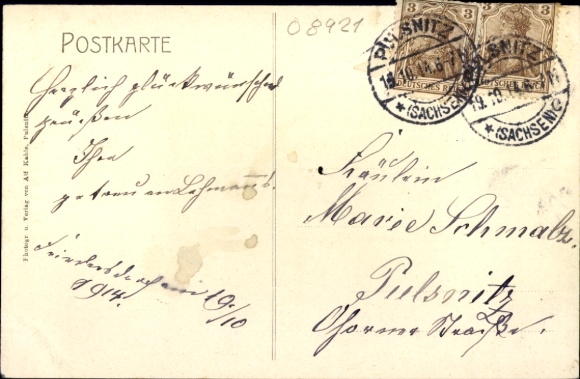 08921
POSTKARTE
3 3
DEUTSCHES REICH
DEUTSCHES REICH
PULSNITZ
19.10.14.6-7
* (SACHSEN)
PULSNITZ
19.10.14.
* (SACHSEN)
Herzlich glückwünschend
grüßen
Ihre
getreuen Lehmanns.
19/10
1914.
Photogr. u. Verlag von Alf Kahle, Pulsnitz
Fräulein
Marie Schmalz.
Pulsnitz
Ohorner Straße.